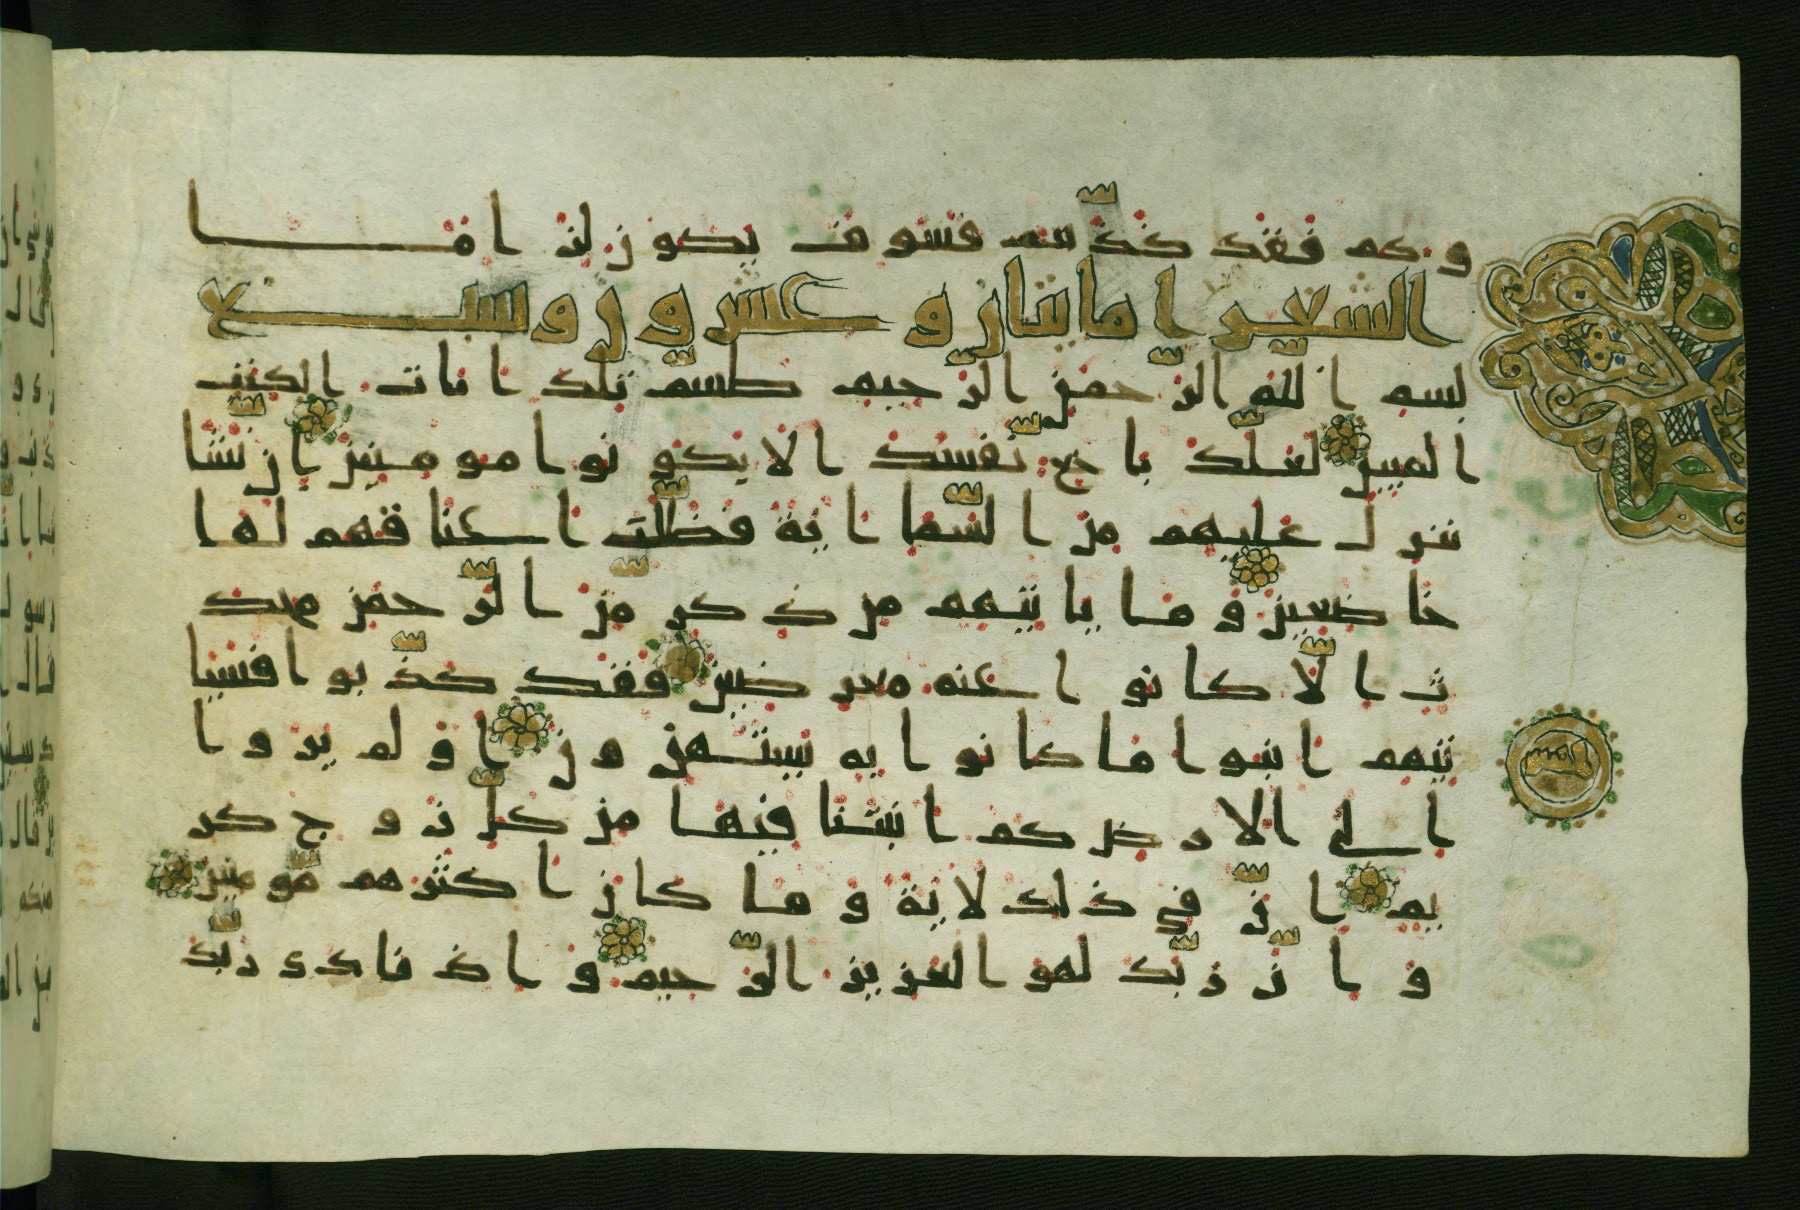 وكم فقد كذّبتم فسوف يكون لزاما
الشعرا مايتان وعشرون وسبع
بسم الله الرّحمن الرّحيم طسم تلك ايات الكتب
المبين لعلّك باخع نفسك الّا يكونوا مومنين ان نشا
ننزل عليهم من السّما اية فظلّت اعناقهم لها
خاضعين وما ياتيهم من ذكر مّن الرّحمن محد
ث الّا كانوا عنه معرضين فقد كذّبوا فسيا
تيهم انبوا ما كانوا به يستهزون اولم يروا
الى الارض كم انبتنا فيها من كلّ زوج كر
يم انّ في ذلك لاية وما كان اكثرهم مّومنين
وانّ ربّك لهو العزيز الرّحيم واذ نادى ربّك